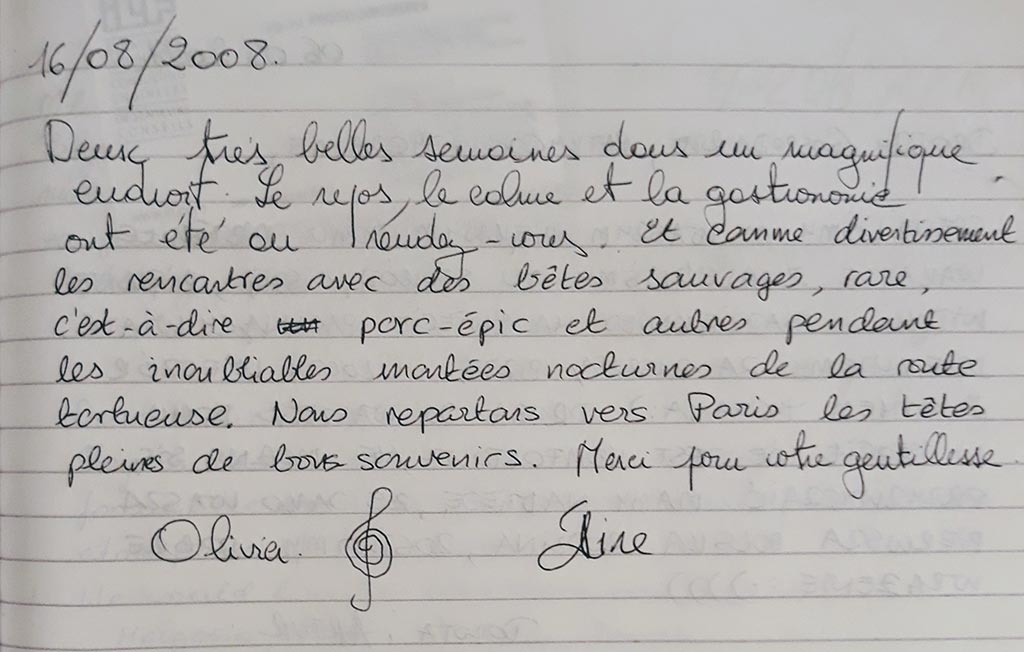 16/08/2008.
Deux très belles semaines dans un magnifique
endroit. Le repos, le calme et la gastronomie
ont été au rendez-vous. Et comme divertissement
les rencontres avec des bêtes sauvages, rare,
c'est-à-dire porc-épic et autres pendant
les inoubliables montées nocturnes de la route
tortueuse. Nous repartons vers Paris les têtes
pleines de bons souvenirs. Merci pour votre gentillesse
Olivia.